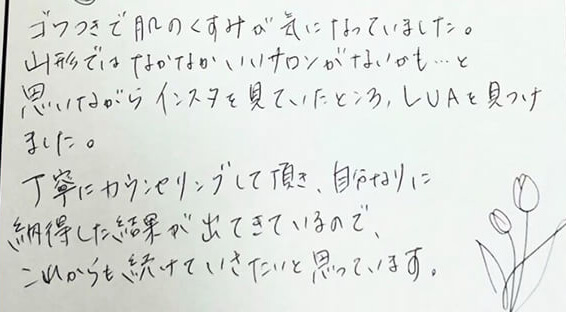 ゴワつきで肌のくすみが気になっていました。
山形ではなかなかいいサロンがないかも…と
思いながらインスタを見ていたところ、LUAを見つけ
ました。
丁寧にカウンセリングして頂き、自分なりに
納得した結果が出てきているので、
これからも続けていきたいと思っています。